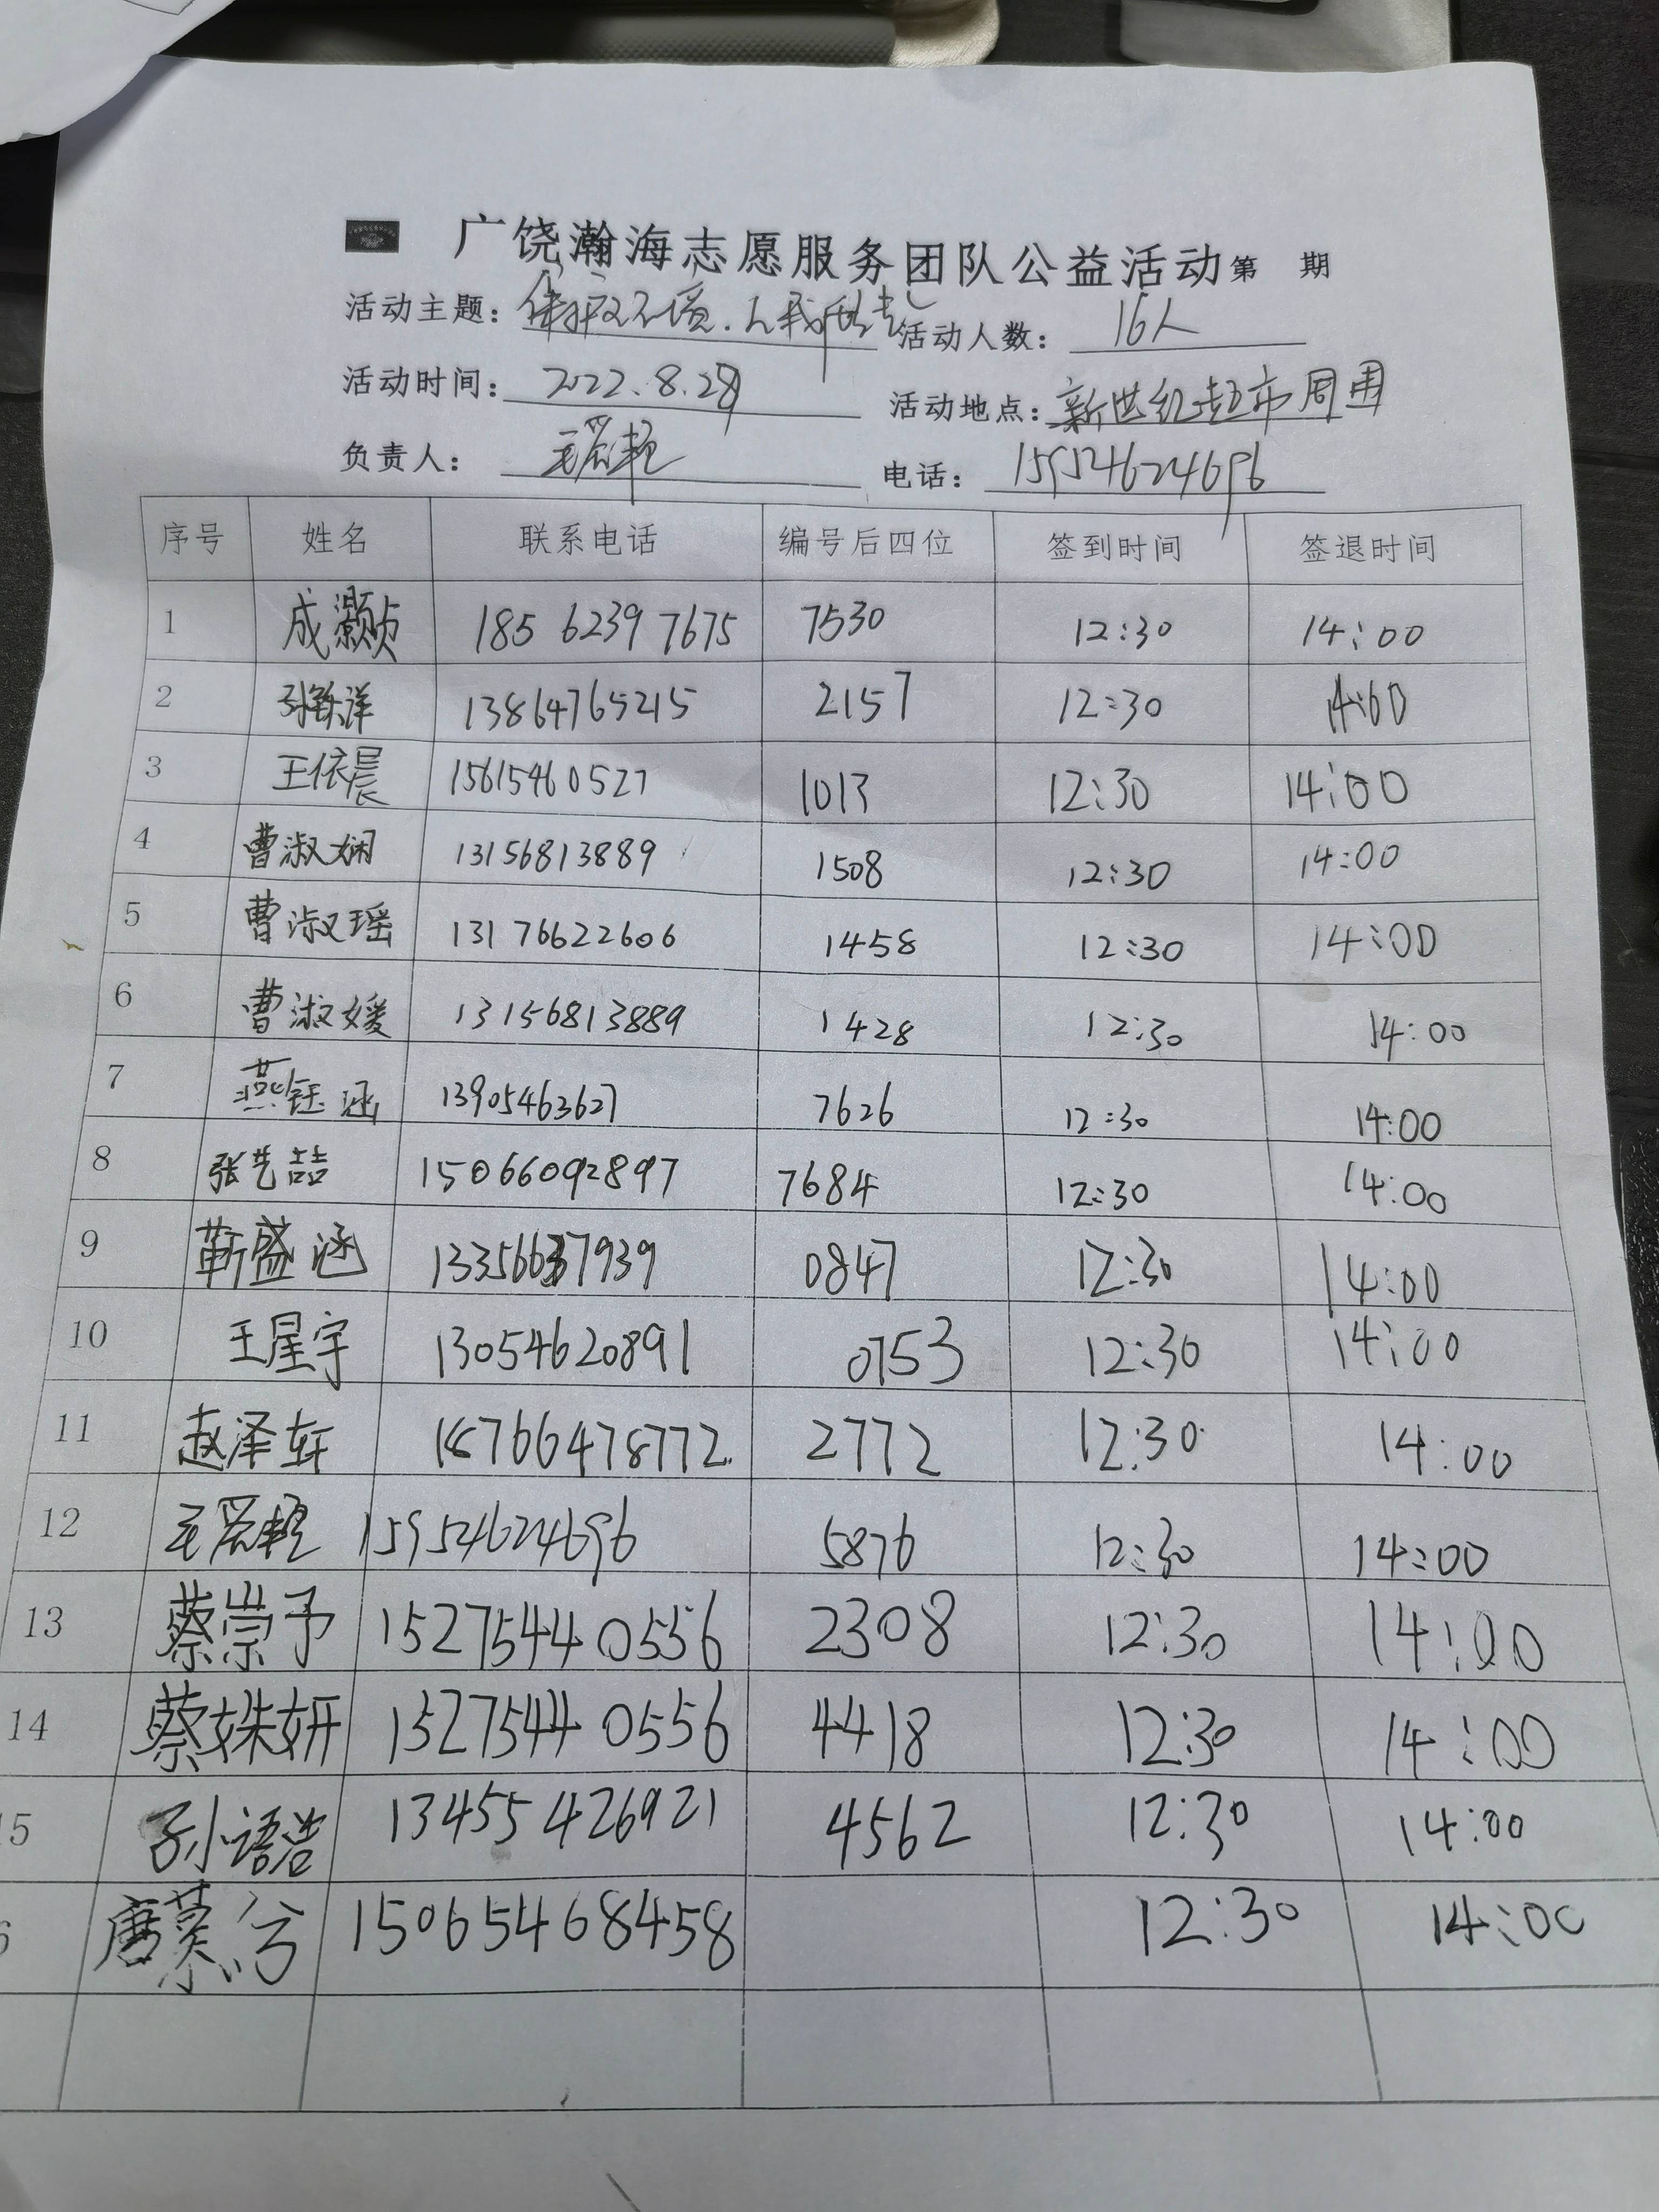 广饶瀚海志愿服务团队公益活动第 期
活动主题：保护环境.从我做起 活动人数：16人
活动时间：2022.8.28 活动地点：新世纪超市周围
负责人： 电话：15954624696
序号 姓名 联系电话 编号后四位 签到时间 签退时间
1 成灏贞 185 6239 7675 7530 12:30 14:00
2 13864765215 2157 12:30 14:00
3 王依晨 15615460527 1013 12:30 14:00
4 曹淑娴 13156813889 1508 12:30 14:00
5 曹淑瑶 13176622606 1458 12:30 14:00
6 曹淑媛 13156813889 1428 12:30 14:00
7 燕钰涵 13905463627 7626 12:30 14:00
8 张艺喆 15066092897 7684 12:30 14:00
9 靳盛涵 13356637939 0847 12:30 14:00
10 王星宇 13054620891 0753 12:30 14:00
11 赵泽轩 18766478772 2772 12:30 14:00
12 15954624696 5876 12:30 14:00
13 蔡崇予 15275440556 2308 12:30 14:00
14 蔡姝妍 15275440556 4418 12:30 14:00
15 孙语浩 13455426921 4562 12:30 14:00
6 唐慕兮 15065468458 12:30 14:00